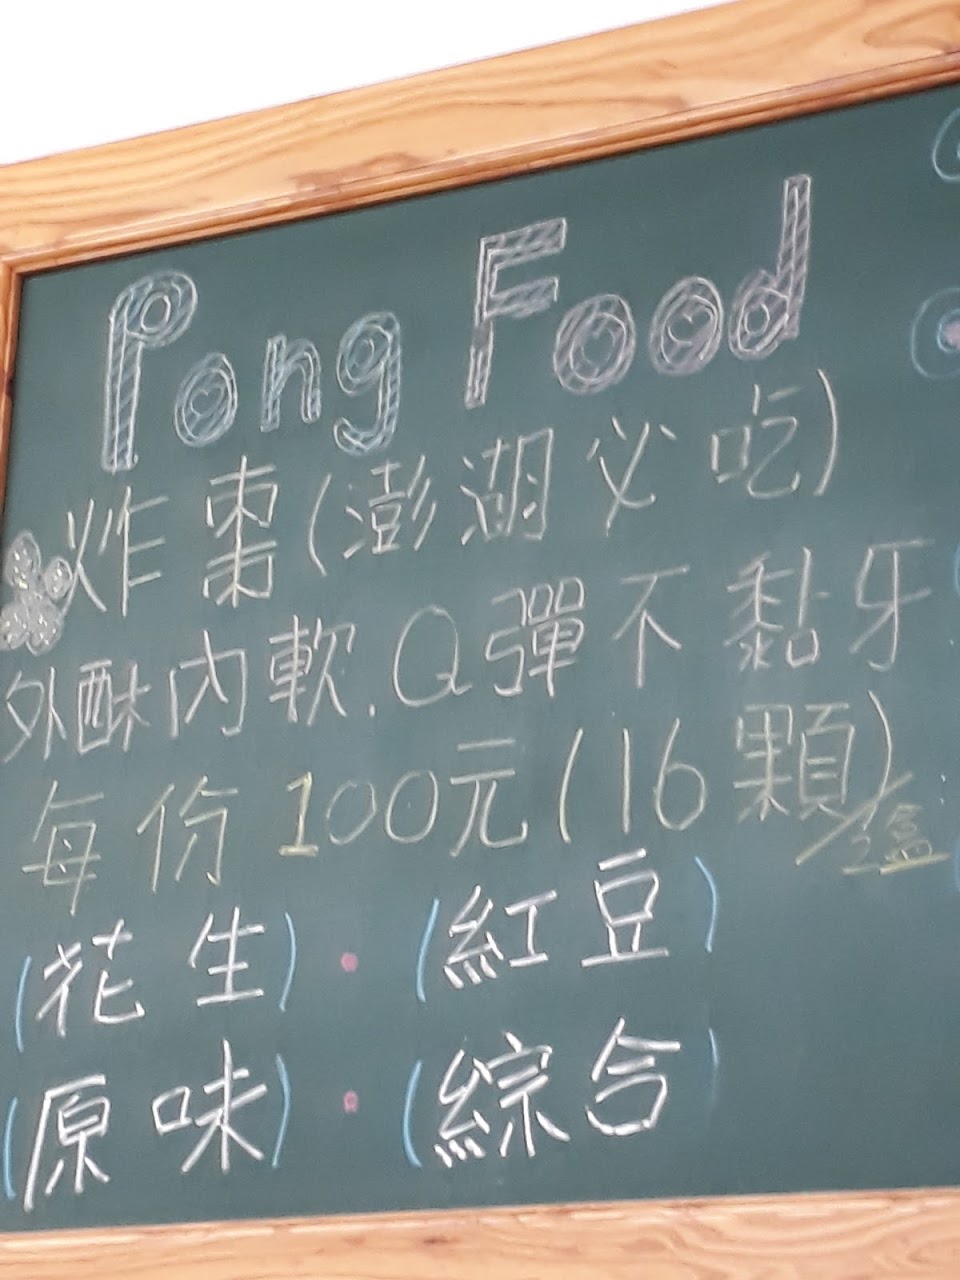 Pong Food
炸棗(澎湖必吃)
外酥內軟.Q彈不黏牙
每份100元(16顆)/盒
(花生)·(紅豆)
(原味)·(綜合)